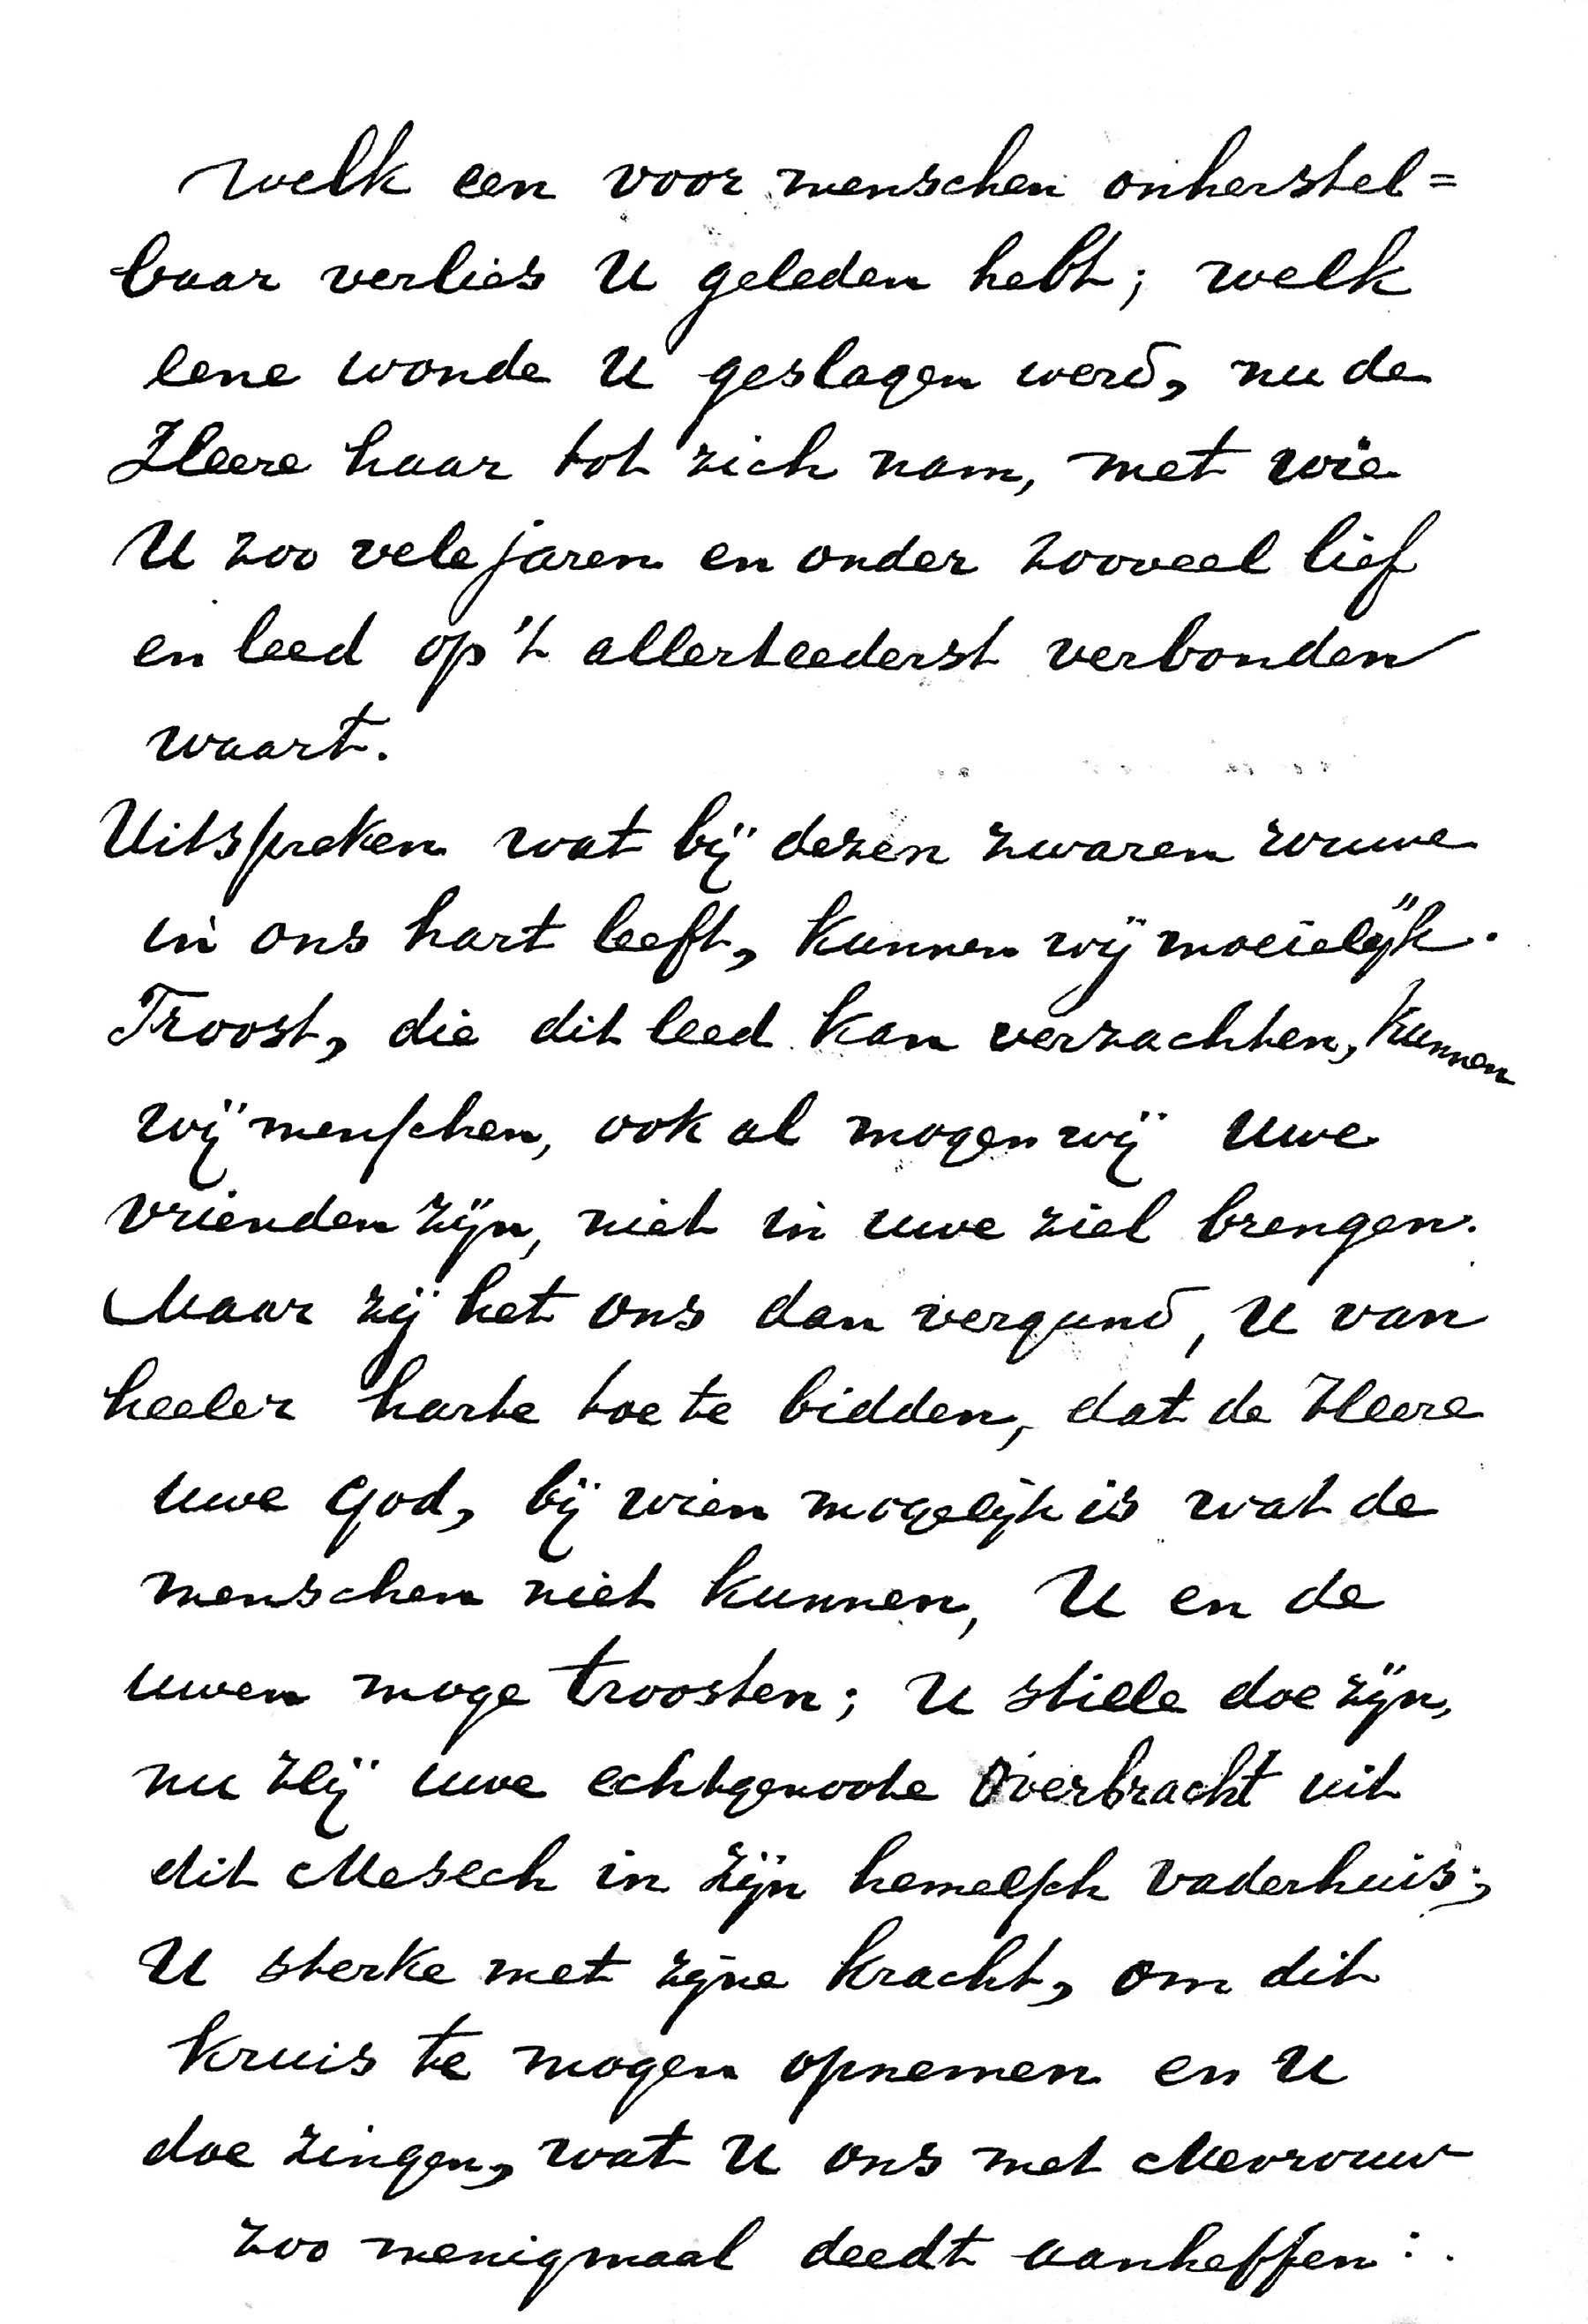 welk een voor menschen onherstel=
baar verlies U geleden hebt; welk
eene wonde U geslagen werd, nu de
Heere haar tot zich nam, met wie
U zoo vele jaren en onder zooveel lief
en leed op 't allerteederst verbonden
waart.
Uitspreken wat bij dezen zwaren rouwe
in ons hart leeft, kunnen wij moeielijk.
Troost, die dit leed kan verzachten, kunnen
wij menschen, ook al mogen wij uwe
vrienden zijn, niet in uwe ziel brengen.
Maar zij het ons dan vergund, U van
heeler harte toe te bidden, dat de Heere
uwe God, bij wien mogelijk is wat de
menschen niet kunnen, U en de
uwen moge troosten; U stille doe zijn,
nu Hij uwe echtgenoote overbracht uit
dit Mesech in zijn hemelsch Vaderhuis;
U sterke met zijne kracht, om dit
kruis te mogen opnemen en U
doe zingen, wat U ons met Mevrouw
zoo menigmaal deedt aanheffen: